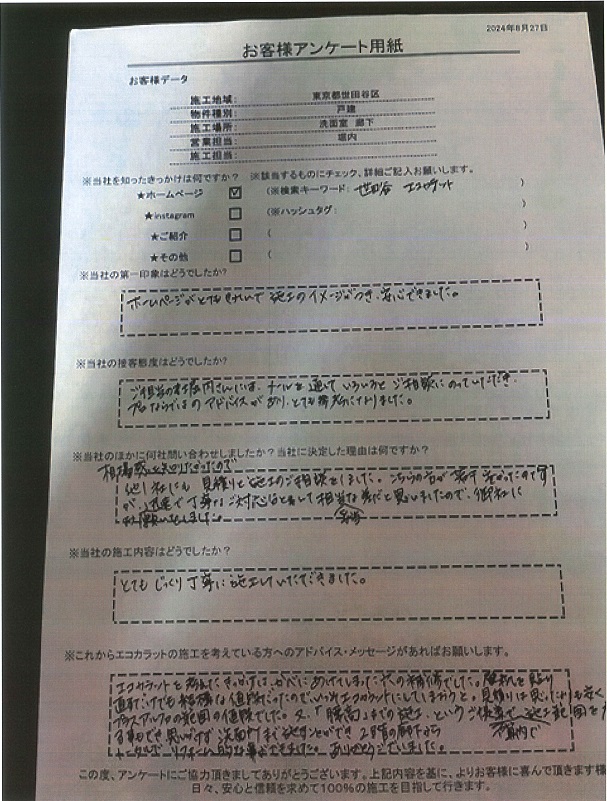 2024年8月27日
お客様アンケート用紙
お客様データ
施工地域: 東京都世田谷区
物件種別: 戸建
施工場所: 洗面室 廊下
営業担当: 堀内
施工担当:
※当社を知ったきっかけは何ですか? ※該当するものにチェック、詳細ご記入お願いします。
★ホームページ ☑ (※検索キーワード: 世田谷 エコカラット )
★instagram □ (※ハッシュタグ: )
★ご紹介 □ ( )
★その他 □ ( )
※当社の第一印象はどうでしたか?
ホームページがとてもきれいで施工のイメージがつき、安心できました。
※当社の接客態度はどうでしたか?
ご担当の堀内さんには、メールを通していろいろとご相談にのっていただき、
プロならではのアドバイスがあり、とても参考になりました。
※当社のほかに何社問い合わせしましたか?当社に決定した理由は何ですか?
相場感を知りたかったので
他1社にも見積りと施工のご相談をしました。こちらの方が若干高かったのです
が、迅速で丁寧なご対応 相当な額だと思いましたので、御社に
お願いしました。
※当社の施工内容はどうでしたか?
とてもじっくり丁寧に施工していただきました。
※これからエコカラットの施工を考えている方へのアドバイス・メッセージがあればお願いします。
エコカラットを考えたきっかけは、かべにあけてしまった穴の補修でした。壁紙を貼り
直すだけでも結構な値段だったので、いっそエコカラットにしてしまおうと。見積りは思ったよりも安く
プラスアルファの範囲の値段でした。又、「腰高」までの施工、というご提案で施工範囲を
思いがけず洗面所まで施工することができ、2階の廊下から
トータルで、リフォーム ができました。ありがとうございました。
この度、アンケートにご協力頂きましてありがとうございます。上記内容を基に、よりお客様に喜んで頂きます様
日々、安心と信頼を求めて100%の施工を目指して行きます。